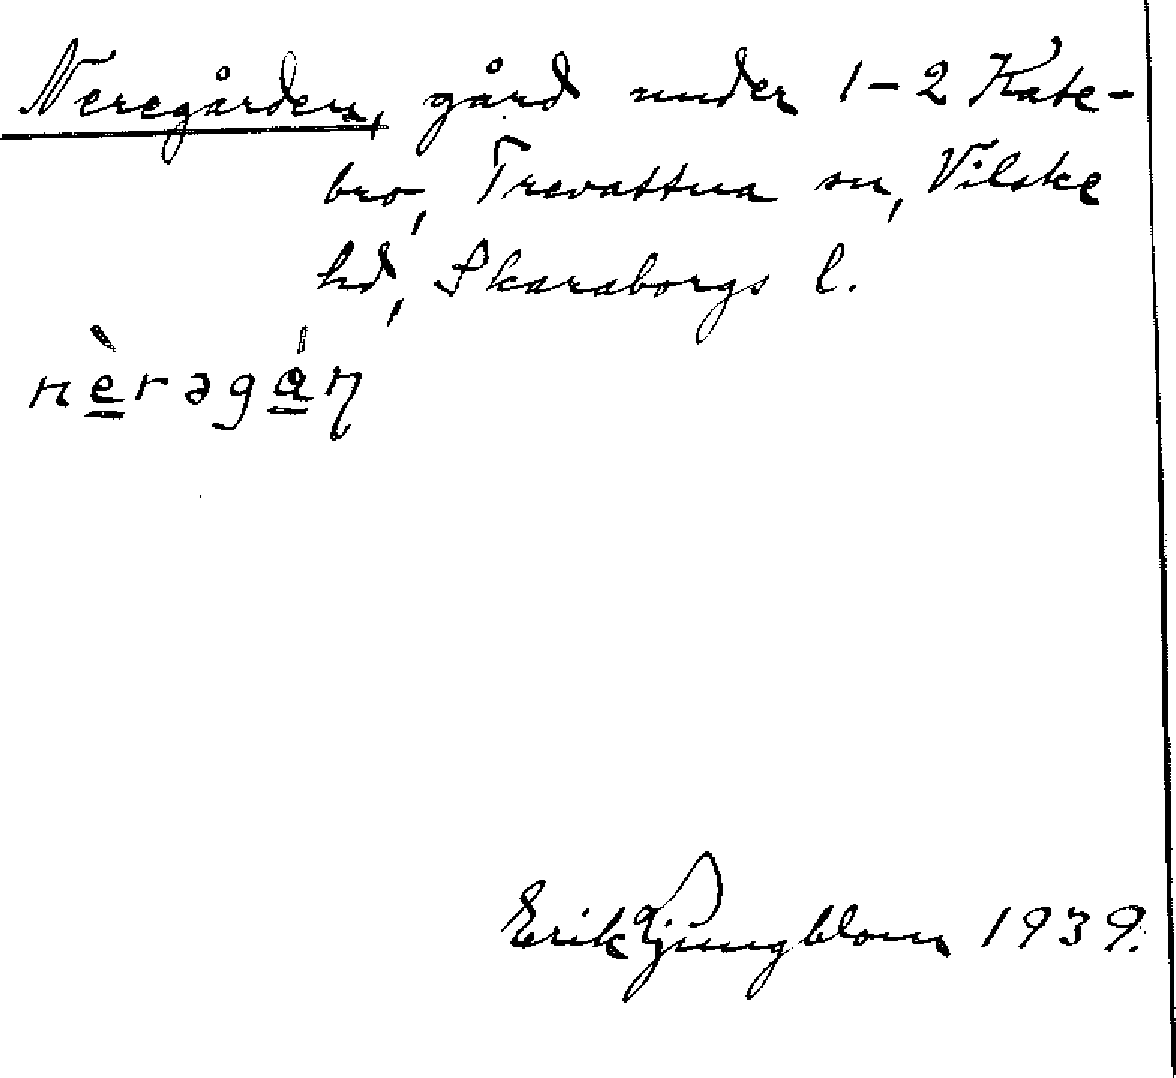 Neregården, gård under 1-2 Kate-
bro, Trevattna sn, Vilske
hd, Skaraborgs l.
nè̠rəgá̠ɳ
Erik Ljungblom 1939.